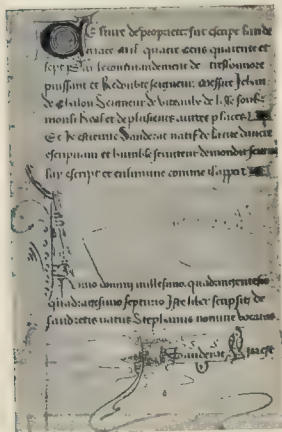 Ce liure de propriete fut escript lan de
grace mil quatre cens quarante et
sept Par le commandement de treshonnore
puissant et Redoubte seigneur messire Jehan
de Chalon Seigneur de viteaulx de lisle soubz
monts Real et de plusieurs autres places
Et Je estienne Sanderat natif de
escripuain et humble seruiteur de mondit seigneur
lay escript et enlumine comme il appert
Anno domini millesimo quadringentesimo
quadragesimo septimo Iste liber scripsit de
sandretis natus Stephanus nomine vocatus
Sanderat